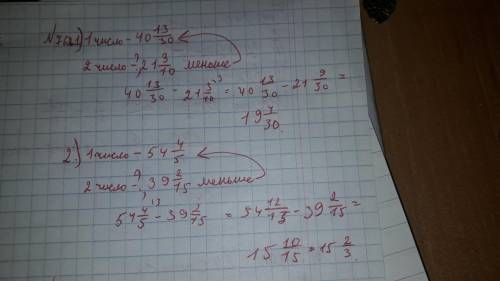 N76а.1) 1 число - 40 13/30
2 число - ?, 21 9/10 меньше
40 13/30 - 21 3/10 ³ = 40 13/30 - 21 9/30 =
19 7/30.
2.) 1 число - 54 4/5
2 число - ?, 39 2/15 меньше
54 4/5 ³ - 39 2/15 = 54 12/15 - 39 2/15 =
15 10/15 = 15 2/3.